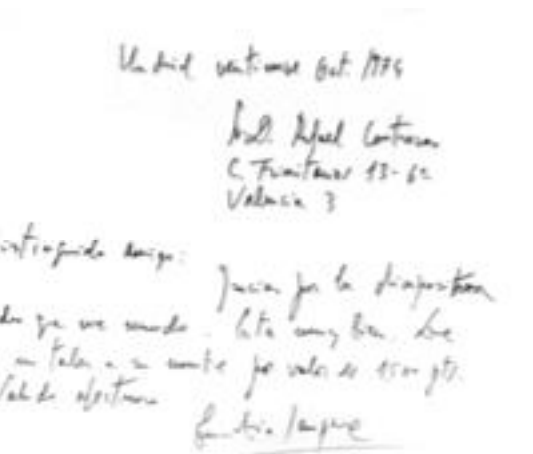 Madrid veintinueve Oct. 1974
Sr. D. Rafael Contreras
C. 13-6º
Valencia 3
distinguido amigo:
Gracias por la diapositiva
que me mando. Esta muy bien. Le
un talon a su nombre por valor de 1500 pts.
Saludo afectuoso